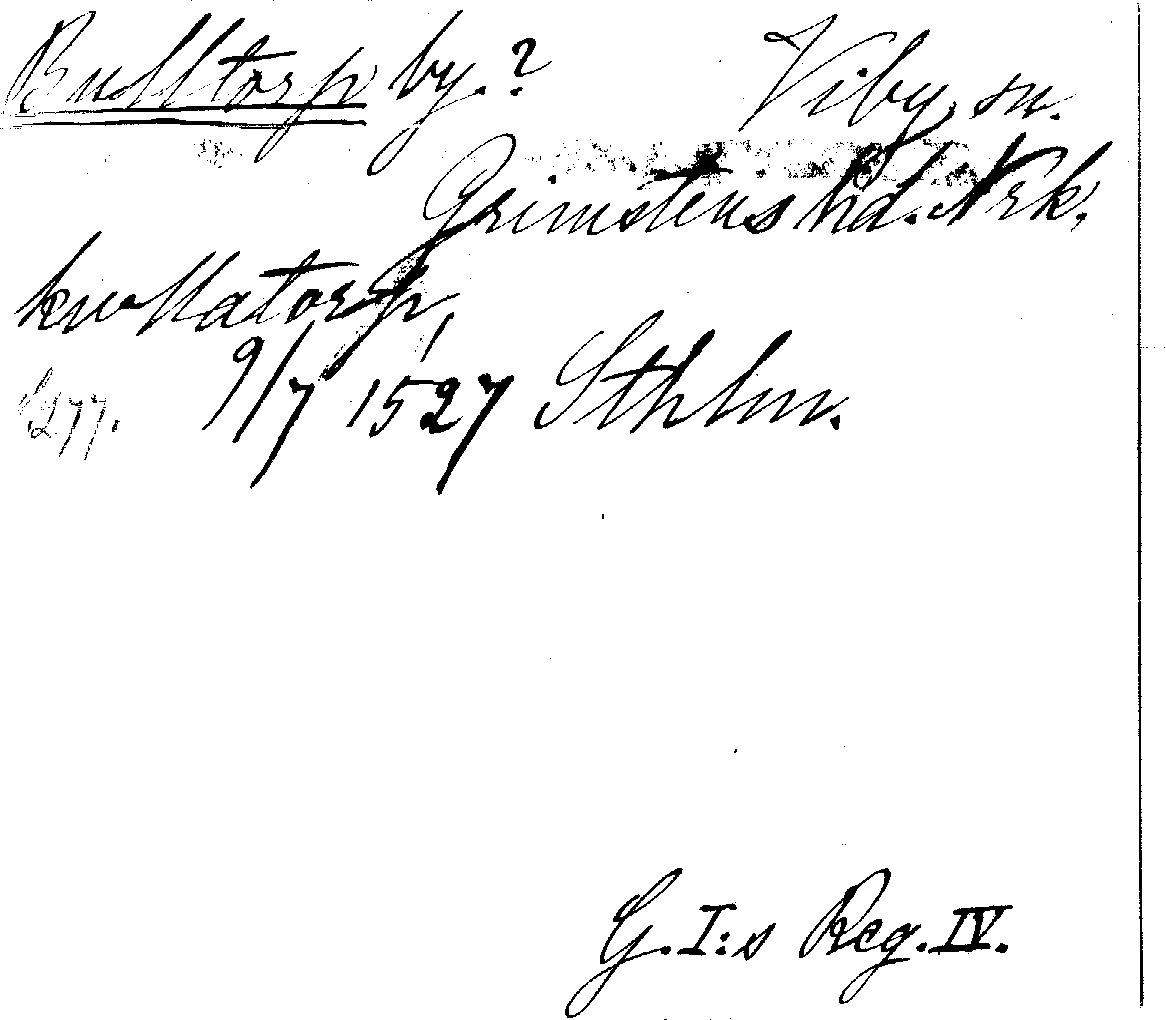 Bulltorp by.? Viby sn.
Grimstens hd. Nrk.
kwllatorp,
s. 277. 9/7 1527 Sthlm.
G. I:s Reg. IV.